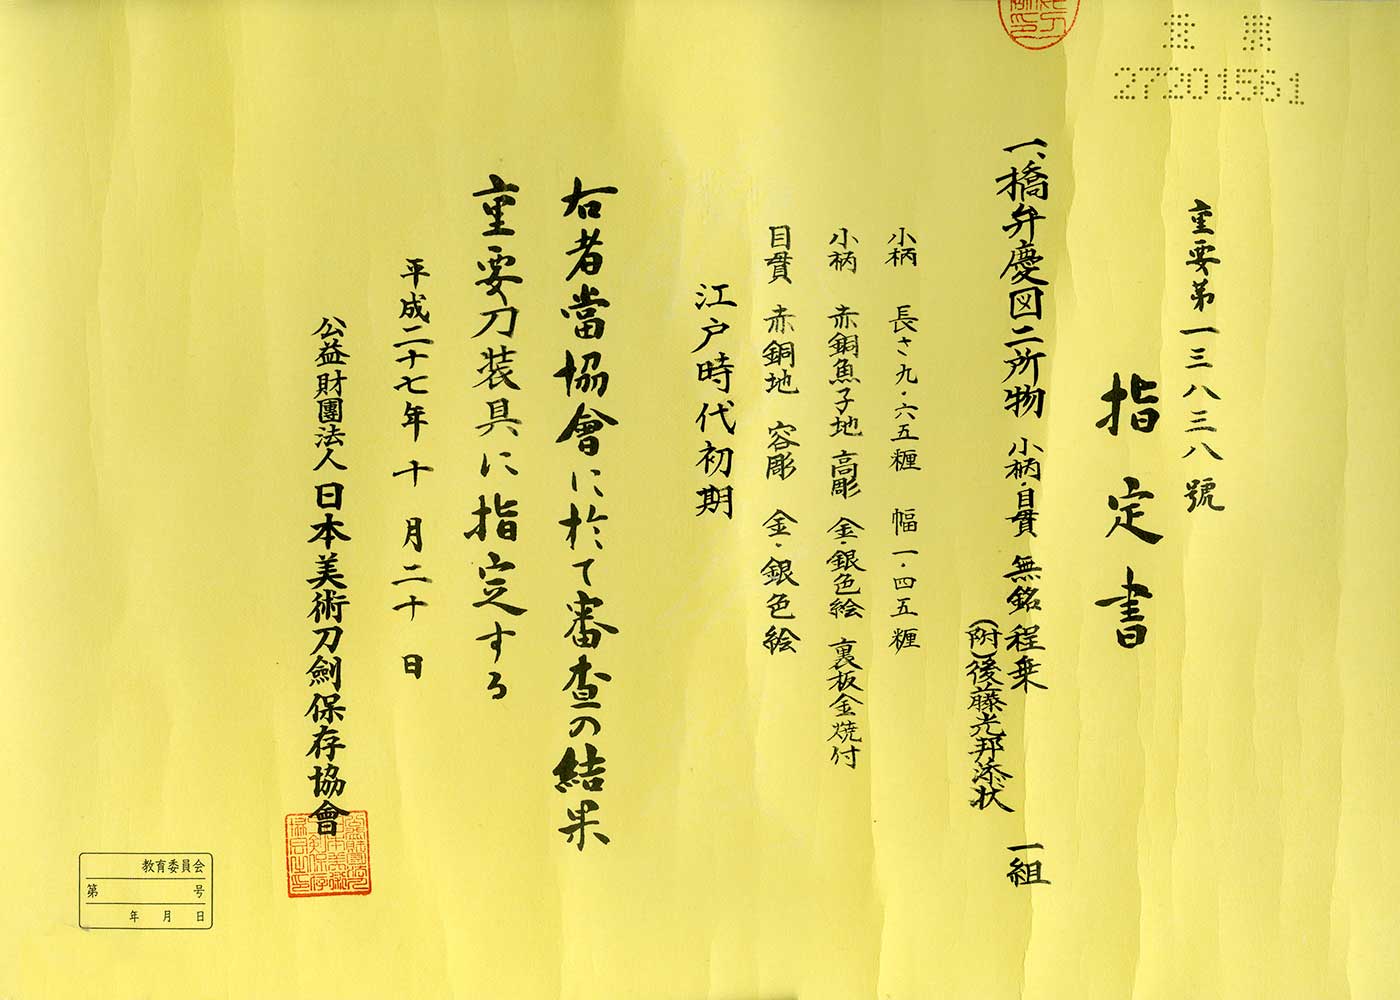 27201561
重要第一三八三八號
指定書
一、橋弁慶図二所物 小柄・目貫 無銘 程乗 一組
(附)後藤光邦添状
小柄 長さ九・六五糎 幅一・四五糎
小柄 赤銅魚子地 高彫 金・銀色絵 裏板金焼付
目貫 赤銅地 容彫 金・銀色絵
江戸時代初期
右者當協會に於て審査の結果
重要刀装具に指定する
平成二十七年十月二十日
公益財團法人日本美術刀劍保存協會
教育委員会
第 号
年 月 日